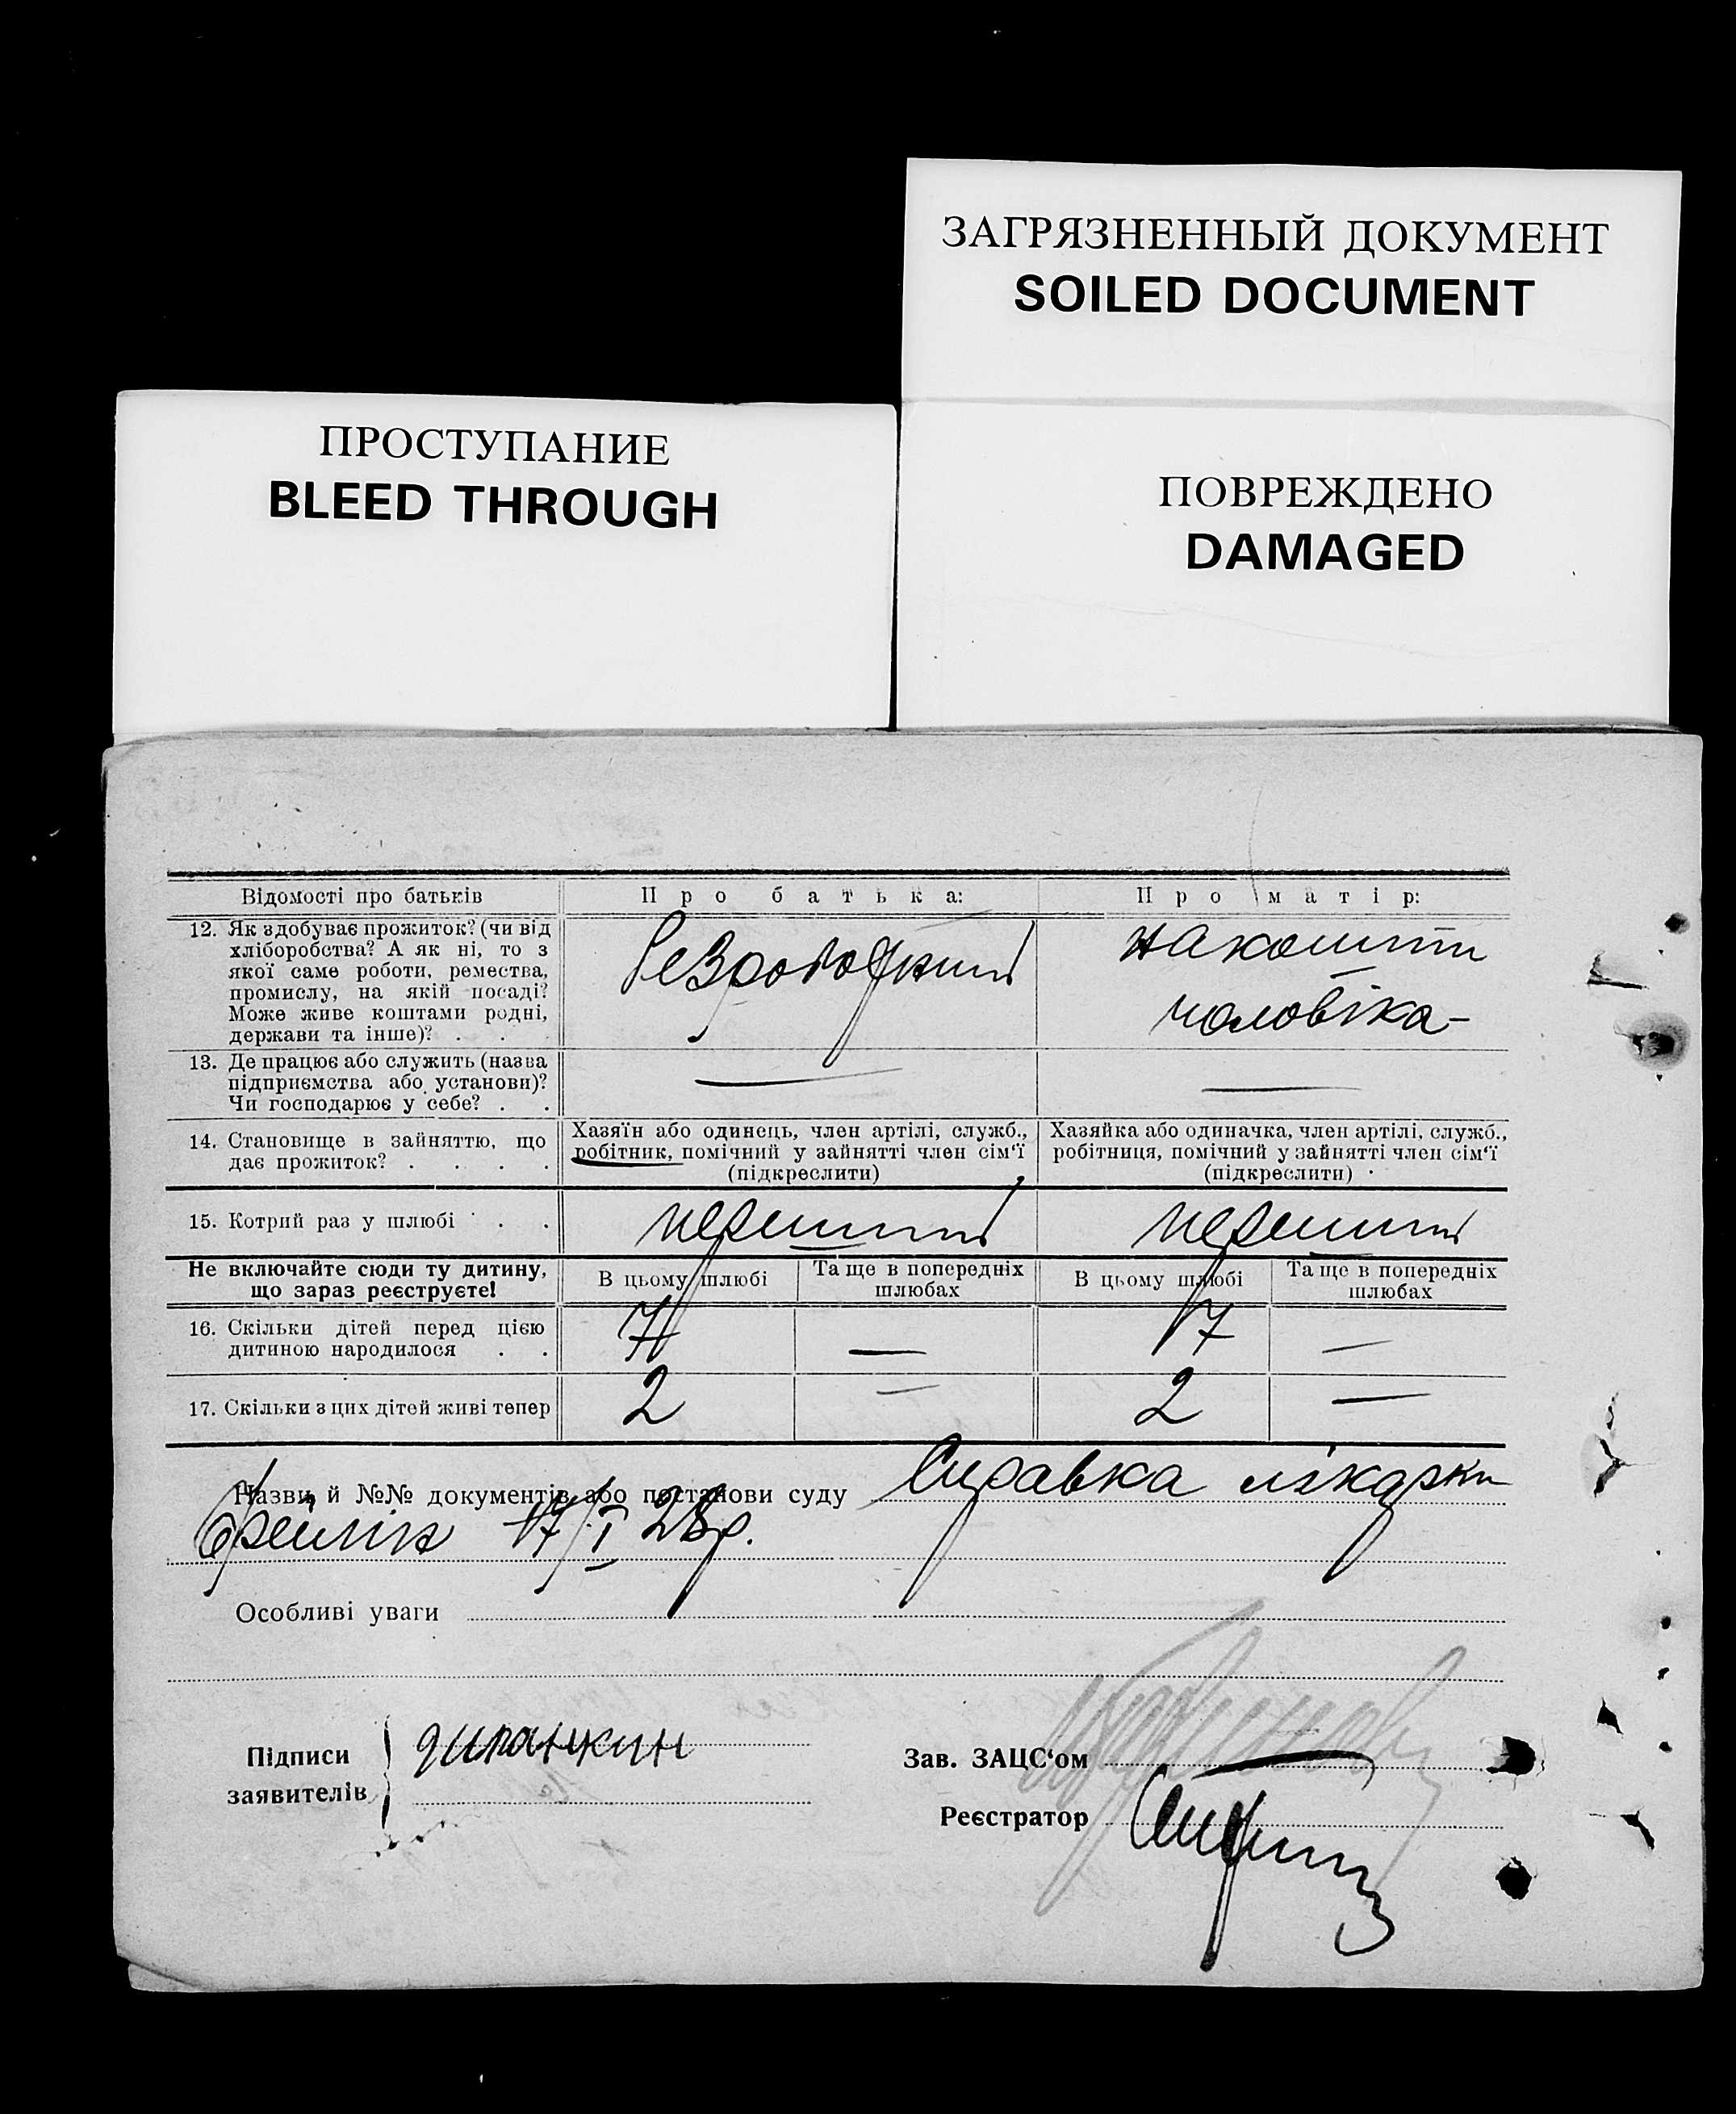 ЗАГРЯЗНЕННЫЙ ДОКУМЕНТ
SOILED DOCUMENT
ПРОСТУПАНИЕ
BLEED THROUGH
ПОВРЕЖДЕНО
DAMAGED
Відомості про батьків
Про батька:
Про матір:
12. Як здобуває прожиток? (чи від
хліборобства? А як ні, то з
якої саме роботи, ремества,
промислу, на якій посаді?
Може живе коштами родні,
держави та інше)? . . .
безробітний
на кошти
чоловіка-
13. Де працює або служить (назва
підприємства або установи)?
Чи господарює у себе? . .
—
—
14. Становище в зайняттю, що
дає прожиток? . . . .
Хазяїн або одинець, член артілі, служб.,
робітник, помічний у зайнятті член сім'ї
(підкреслити)
Хазяйка або одиначка, член артілі, служб.,
робітниця, помічний у зайнятті член сім'ї
(підкреслити)
15. Котрий раз у шлюбі . .
перший
перший
Не включайте сюди ту дитину,
що зараз реєструєте!
В цьому шлюбі
Та ще в попередніх
шлюбах
В цьому шлюбі
Та ще в попередніх
шлюбах
16. Скільки дітей перед цією
дитиною народилося . .
7
—
7
—
17. Скільки з цих дітей живі тепер
2
—
2
—
Назви й №№ документів або постанови суду Справка лікарки
17/I 28р.
Особливі уваги
Підписи
заявителів
Зав. ЗАЦС'ом
Реєстратор